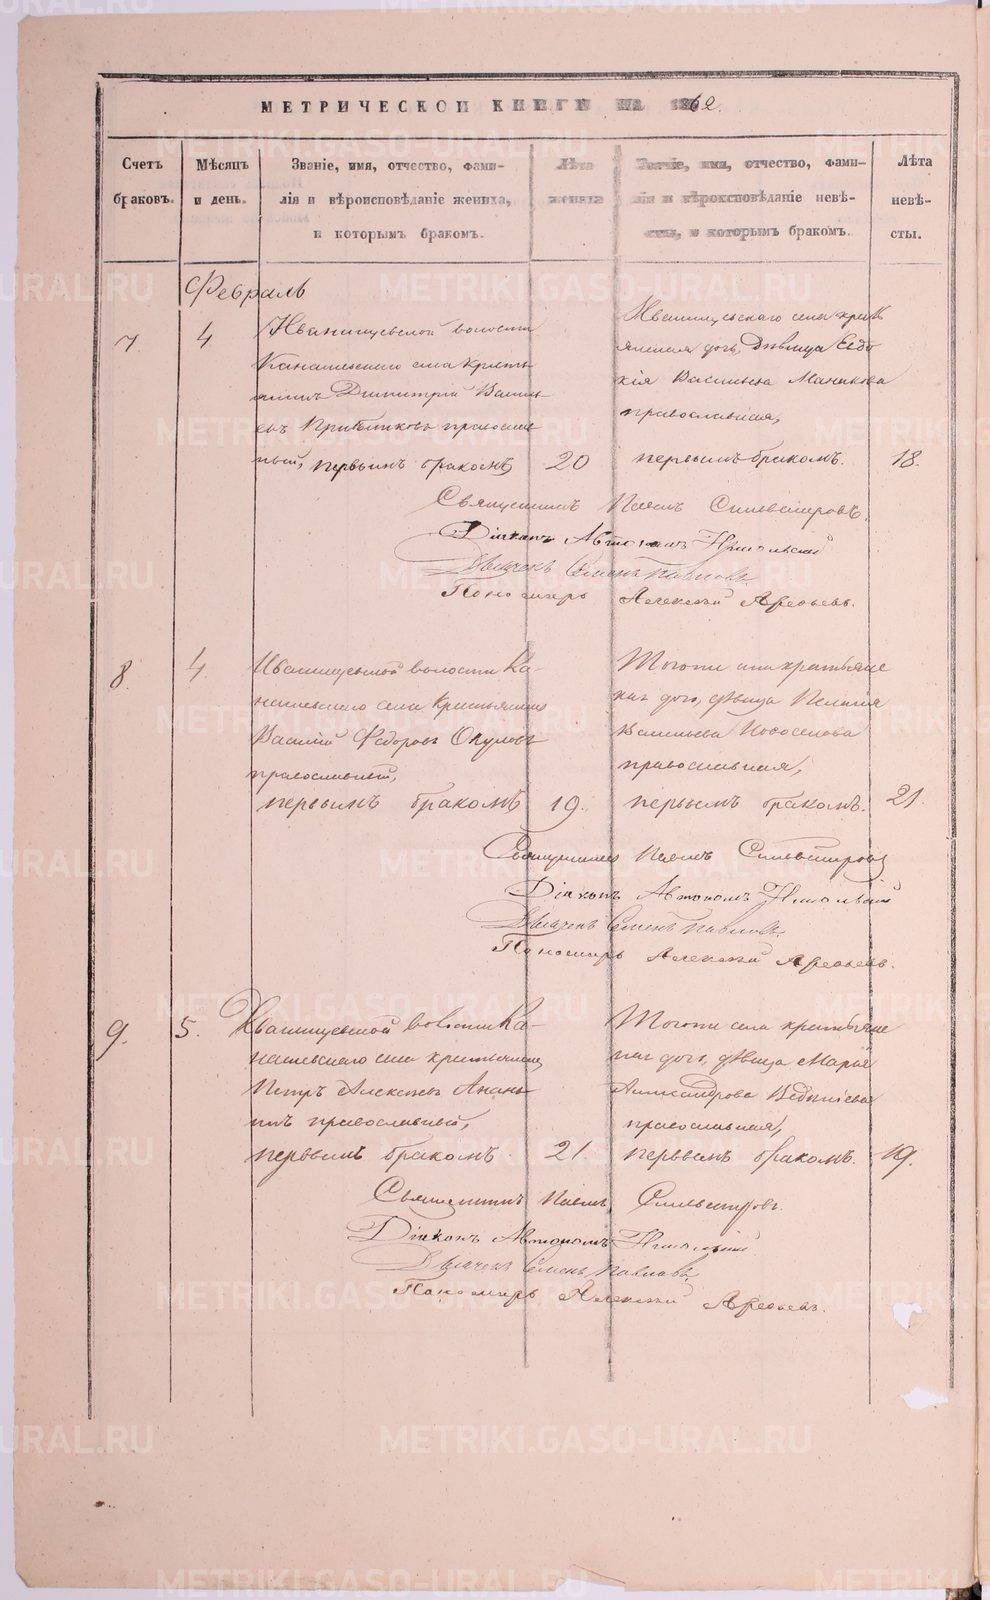 МЕТРИЧЕСКОЙ КНИГИ НА 1862.
Счетъ браковъ.
Мѣсяцъ и день.
Званіе, имя, отчество, фами-
лія и вѣроисповѣданіе жениха,
и которымъ бракомъ.
Лѣта
жениха
Званіе, имя, отчество, фами-
лія и вѣроисповѣданіе невѣ-
сты, и которымъ бракомъ.
Лѣта
невѣ-
сты.
Февраль
7.
4
Иванищевской волости
Канашевскаго села крестья
янинъ Димитрій Василь
евъ православ
ный, первымъ бракомъ
20
Иванищевскаго села крестья
янская дочь, дѣвица Евдо
кія Васильева
православная,
первымъ бракомъ.
18.
Священникъ Павелъ Сильвестровъ.
Діаконъ Автономъ Никольскій
Дьячекъ Семенъ Павловъ
Пономарь Алексѣй Арефьевъ.
8.
4.
Иванищевской волости Ка-
нашевскаго села крестьянинъ
Василій Федоровъ Окуловъ
православный,
первымъ бракомъ
19.
Тогоже села крестьянс
кая дочь, дѣвица Пелагія
Васильева Новоселова
православная,
первымъ бракомъ.
21.
Священникъ Павелъ Сильвестровъ
Діаконъ Автономъ Никольскій
Дьячекъ Семенъ Павловъ
Пономарь Алексѣй Арефьевъ.
9.
5.
Иванищевской волости Ка-
нашевскаго села крестьянинъ
Петръ Алексѣевъ Анань
инъ православный,
первымъ бракомъ.
21.
Тогоже села крестьянс
кая дочь, дѣвица Марія
Александрова
православная,
первымъ бракомъ.
19.
Священникъ Павелъ Сильвестровъ.
Діаконъ Автономъ Никольскій
Дьячекъ Семенъ Павловъ
Пономарь Алексѣй Арефьевъ.
METRIKI.GASO-URAL.RU